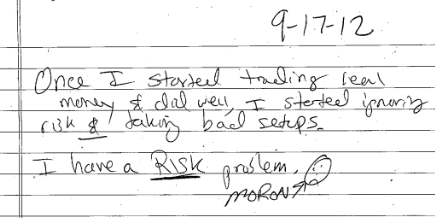 9-17-12
Once I started trading real
money & did well, I started ignoring
risk & taking bad setups.
I have a RISK problem.
MORON